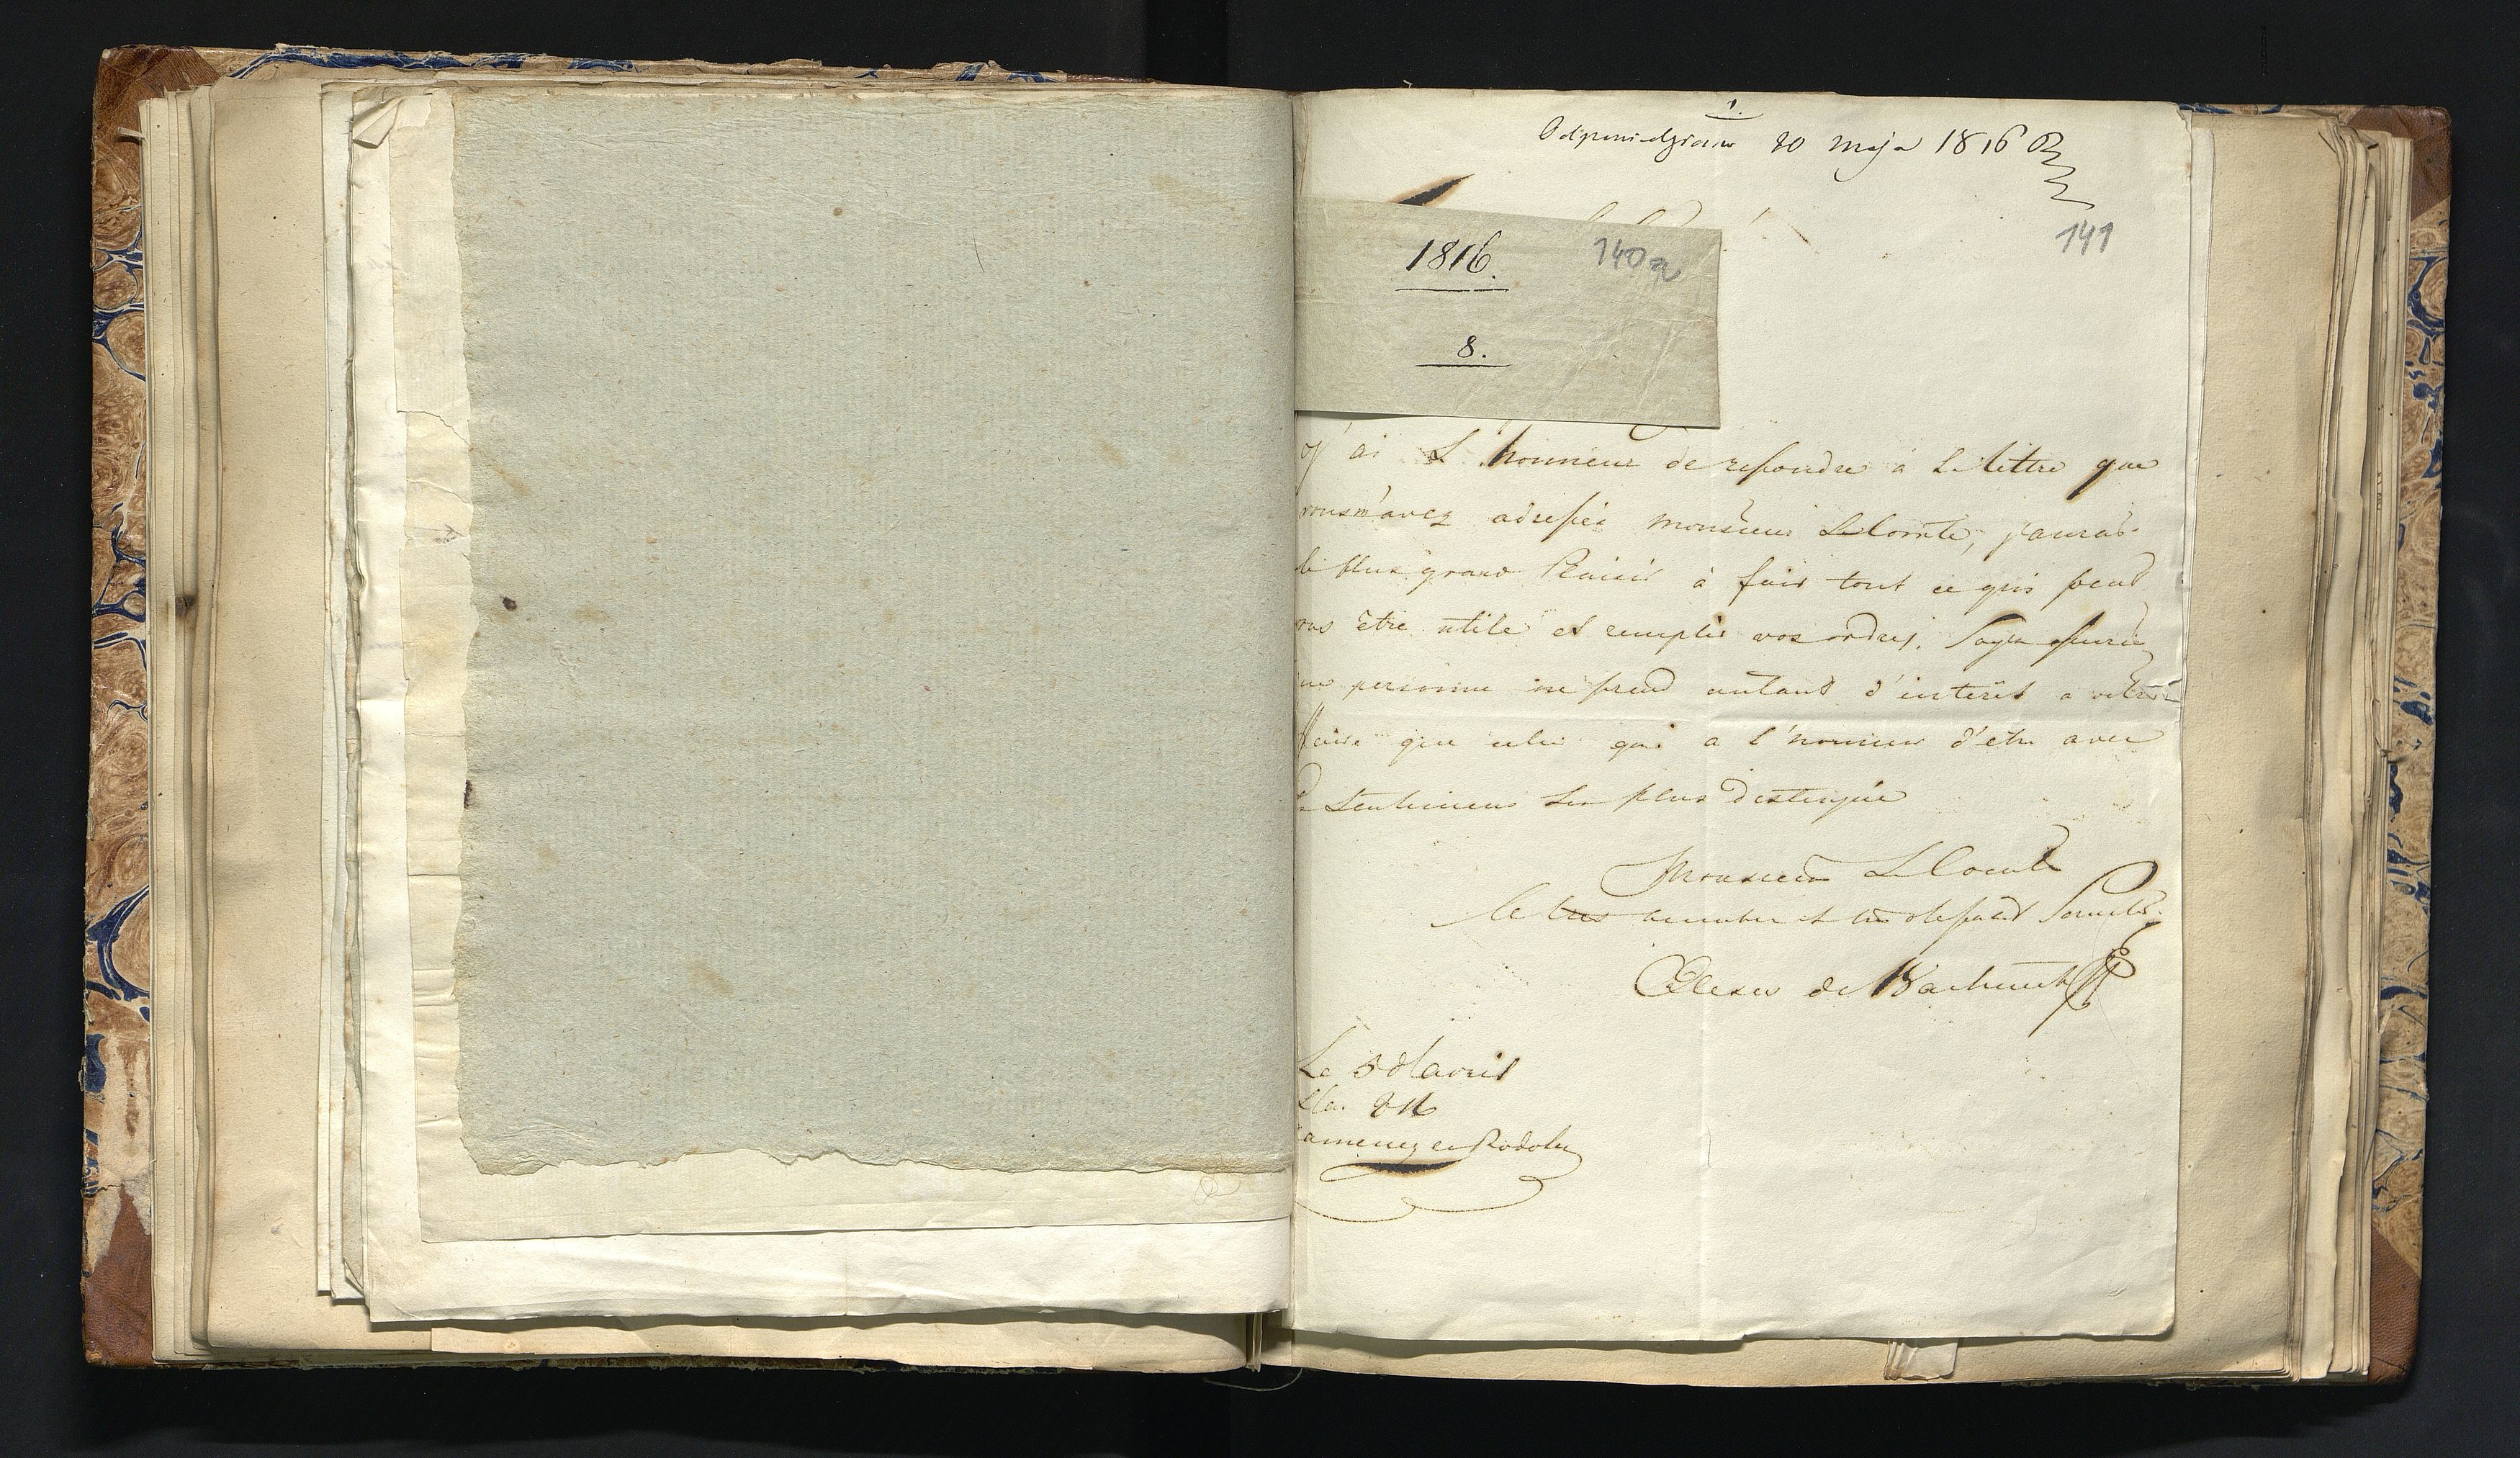 1.
Odpowiedziano 20 maja 1816
141
1816.
140a
8.
J'ai L'honneur de repondre à La lettre que
vous m'avez adressée monsieur Le Comte, j'aurais
le plus grand Plaisir à fair tout ce qui peut
être utile et remplir vos ordres. Soyez
personne ne prend autant d'interêt a votre
que celui qui a l'honneur d'etre avec
Sentimens Les plus Distingué
Monsieur Le Comte
le tres et tres
de
Le 5 d'avril
816
amenez en Podolie